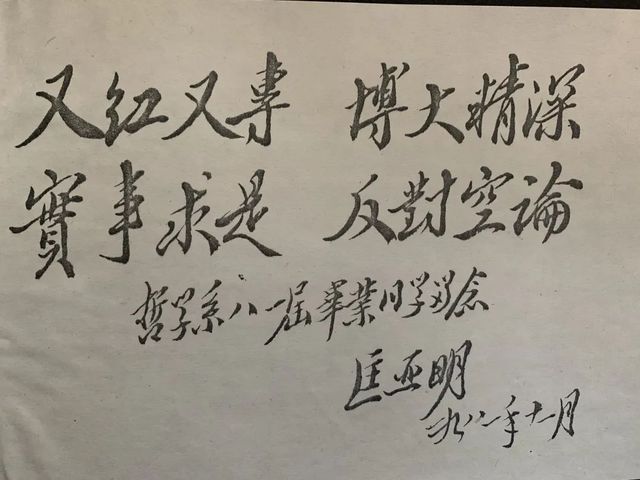 又红又專 博大精深
實事求是 反對空論
哲学系八一屆畢業同学留念
匡亚明
一九八一年十一月